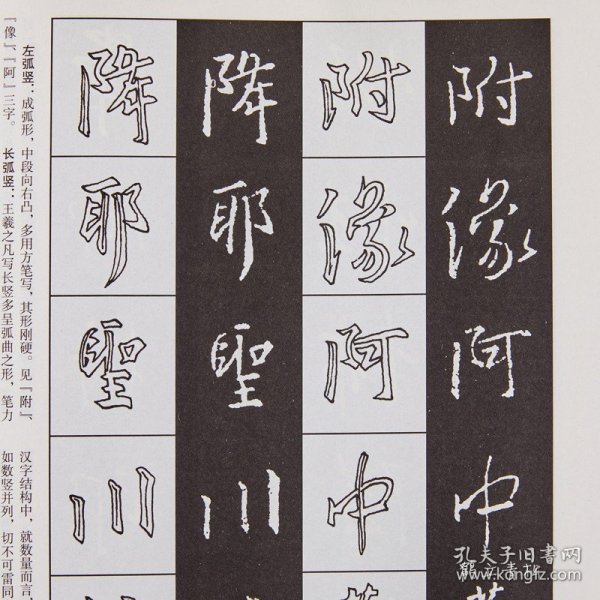 附
像
阿
中
附
像
阿
中
降
耶
聖
川
降
耶
聖
川
左弧竖：成弧形，中段向右凸，多用方笔写，其形刚硬。见『附』、
『像』、『阿』三字。　长弧竖：王羲之凡写长竖多呈弧曲之形，笔力
汉字结构中，就数量而言，
如数竖并列，切不可雷同
孔夫子旧书网
www.kongfz.com